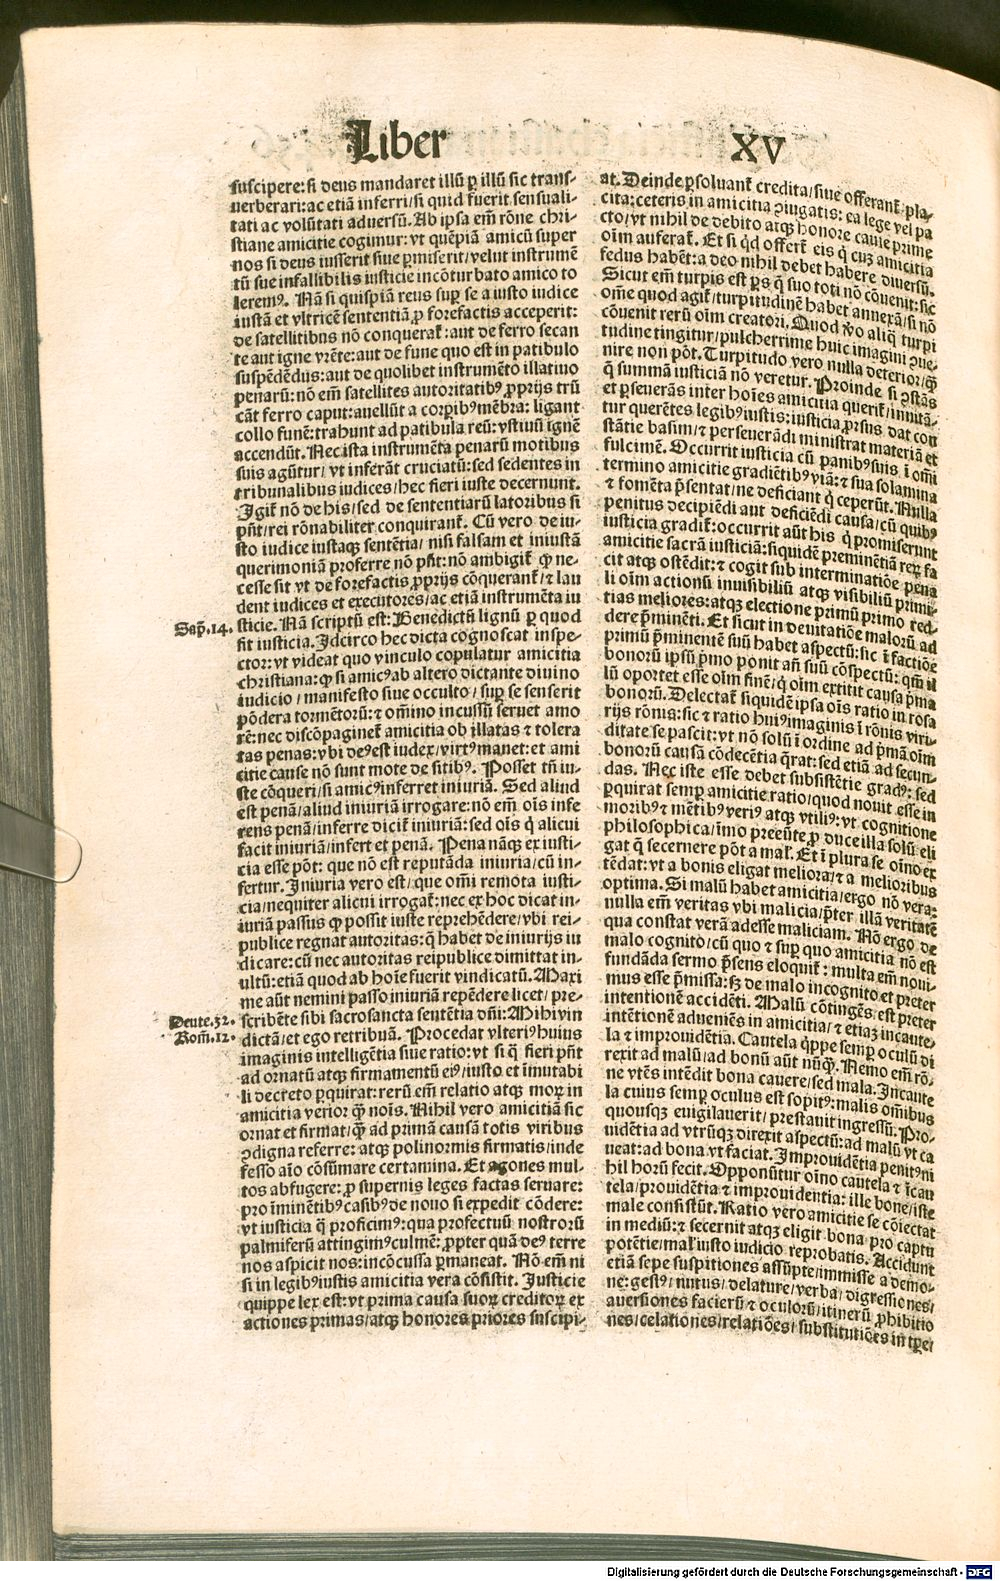 Liber XV
suscipere: si deus mandaret illū ꝑ illū sic trans-
uerberari: ac etiā inferri/si quid fuerit sensuali-
tati ac volūtati aduersū. Ab ipsa em̄ rōne chri-
stiane amicitie cogimur: vt quēpiā amicū super
nos si deus iusserit siue ꝑmiserit/velut instrumē
tū sue infallibilis iusticie incōturbato amico to
leremꝰ. Nā si quispiā reus suꝑ se a iusto iudice
iustā et vltricē sententiā ꝓ forefactis acceperit:
de satellitibus nō conquerat̄: aut de ferro secan
te aut igne vrēte: aut de fune quo est in patibulo
suspēdēdus: aut de quolibet instrumēto illatiuo
penarū: nō em̄ satellites autoritatibꝰ ꝓprijs trū
cāt ferro caput: auellūt a corꝑibꝰ mēbra: ligant
collo funē: trahunt ad patibula reū: vstiuū ignē
accendūt. Nec ista instrumēta penarū motibus
suis agūtur/ vt inferāt cruciatū: sed sedentes in
tribunalibus iudices/hec fieri iuste decernunt.
Igit̄ nō de his/sed de sententiarū latoribus si
pn̄t/rei rōnabiliter conquirant̄. Cū vero de iu-
sto iudice iustaqꝫ sentētia/ nisi falsam et iniustā
querimoniā proferre nō pn̄t: nō ambigit̄ ꝙ ne-
cesse sit vt de forefactis ꝓprijs cōquerant̄/⁊ lau
dent iudices et executores/ac etiā instrumēta iu
Sap̄.14. sticie. Nā scriptū est: Benedictū lignū ꝑ quod
fit iusticia. Idcirco hec dicta cognoscat inspe-
ctor: vt videat quo vinculo copulatur amicitia
christiana: ꝙ si amicꝰ ab altero dictante diuino
iudicio/ manifesto siue occulto/ suꝑ se senserit
pōdera tormētorū: ⁊ om̄ino incussū seruet amo
rē: nec discōpaginet̄ amicitia ob illatas ⁊ tolera
tas penas: vbi deꝰ est iudex/virtꝰ manet: et ami
citie cause nō sunt mote de sitibꝰ. Posset tn̄ iu-
ste cōqueri/si amicꝰ inferret iniuriā. Sed aliud
est penā/aliud iniuriā irrogare: nō em̄ ois infe
rens penā/inferre dicit̄ iniuriā: sed ois q̇ alicui
facit iniuriā/infert et penā. Pena nāqꝫ ex iusti-
cia esse pōt: que nō est reputāda iniuria/cū in-
fertur. Iniuria vero est/ que om̄i remota iusti-
cia/nequiter alicui irrogat̄: nec ex hoc dicat in-
iuriā passus ꝙ possit iuste reprehēdere/vbi rei-
publice regnat autoritas: q̄ habet de iniurijs iu
dicare: cū nec autoritas reipublice dimittat in-
ultū: etiā quod ab hoīe fuerit vindicatū. Maxi
me aūt nemini passo iniuriā repēdere licet/ pre-
Deute.32. scribēte sibi sacrosancta sentētia dn̄i: Mihi vin
Rom̄.12. dictā/et ego retribuā. Procedat vlteriꝰ huius
imaginis intelligētia siue ratio: vt si q̄ fieri pn̄t
ad ornatū atqꝫ firmamentū eiꝰ/iusto et īmutabi
li decreto ꝑquirat: rerū em̄ relatio atqꝫ moꝝ in
amicitia verior q̄ꝫ nōis. Nihil vero amicitiā sic
ornat et firmat/q̄ꝫ ad primā causā totis viribus
ꝯdigna referre: atqꝫ polinormis firmatis/inde
fesso aīo cōsūmare certamina. Et agones mul-
tos abfugere: ꝓ supernis leges factas seruare:
pro iminētibꝰ casibꝰ de nouo si expedit cōdere:
vt iusticia q̄ proficimꝰ: qua profectuū nostrorū
palmiferū attingimꝰ culmē: ꝓpter quā deꝰ terre
nos aspicit nos: incōcussa ꝑmaneat. Nō em̄ ni
si in legibꝰ iustis amicitia vera cōsistit. Justicie
quippe lex est: vt prima causa suoꝝ creditoꝝ ex
actiones primas/atqꝫ honores priores suscipi-
at. Deinde ꝑsoluant̄ credita/siue offerant̄ pla-
cita: ceteris in amicitia ꝯiugatis: ea lege vel pa
cto/vt nihil de debito atqꝫ honore cause prime
oīm auferat̄. Et si qd̄ offert̄ eis q̄ cuꝫ amicitia
fedus habēt: a deo nihil debet habere diuersū.
Sicut em̄ turpis est ꝑs q̄ suo toti nō cōuenit: sic
om̄e quod agit̄/turpitudinē habet annexā/si nō
cōuenit rerū oīm creatori. Quod v̄o aliq̄ turpi
tudine tingitur/pulcherrime huic imagini ꝯue-
nire non pōt. Turpitudo vero nulla deterior/q̄ꝫ
q̄ summā iusticiā nō veretur. Proinde si ꝯstās
et ꝑseuerās inter hoīes amicitia querit̄/inuitā-
tur querētes legibꝰ iustis: iusticia ꝓrsus dat con
stātie basim/⁊ perseuerādi ministrat materiā et
fulcimē. Occurrit iusticia cū panibꝰ suis ī om̄i
termino amicitie gradiētibꝰ viā: ⁊ sua solamina
⁊ fomēta p̄sentat/ne deficiant q̇ ceperūt. Nulla
penitus decipiēdi aut deficiēdi causa/cū quibꝰ
iusticia gradit̄: occurrit aūt his q̇ promiserunt
amicitie sacrā iusticiā: siquidē preminētiā reꝝ fa
cit atqꝫ ostēdit: ⁊ cogit sub interminatiōe pena
li oīm actionū inuisibiliū atqꝫ visibiliū primi-
tias meliores: atqꝫ electione primū primo red-
dere p̄minēti. Et sicut in deuitatiōe malorū ad
primū p̄minentē suū habet aspectū: sic ī factiōe
bonorū ipsū p̄mo ponit an̄ suū cōspectū: qm̄ il
lū oportet esse oīm finē/q̇ oīm extitit causa p̄ma
bonorū. Delectat̄ siquidē ipsa oīs ratio in rosa
rijs rōnis: sic ⁊ ratio huiꝰ imaginis ī rōnis viri-
ditate se pascit: vt nō solū ī ordine ad p̄mā oīm
bonorū causā cōdecētia q̄rat: sed etiā ad secun-
das. Nec iste esse debet subsistētie gradꝰ: sed
ꝑquirat semꝑ amicitie ratio/quod nouit esse in
moribꝰ ⁊ mētibꝰ veriꝰ atqꝫ vtiliꝰ: vt cognitione
philosophica/īmo preeūte ꝓ duce illa solū eli
gat q̄ secernere pōt a mal̄. Et ī plura se oīno ex
tēdat: vt a bonis eligat meliora/⁊ a melioribus
optima. Si malū habet amicitia/ergo nō vera:
nulla em̄ veritas vbi malicia/p̄ter illā veritatē
qua constat verā adesse maliciam. Nō ergo de
malo cognito/cū quo ⁊ suꝑ quo amicitia nō est
fundāda sermo p̄sens eloquit̄: multa em̄ noui-
mus esse p̄missa: sꝫ de malo incognito et preter
intentionē accidēti. Malū cōtingēs est preter
intētionē adueniēs in amicitia/⁊ etiaꝫ incaute/
la ⁊ improuidētia. Cautela q̄ppe semꝑ oculū di
rexit ad malū/ad bonū aūt nūq̄ꝫ. Nemo em̄ rō-
ne vtēs intēdit bona cauere/sed mala. Incaute
la cuius semꝑ oculus est sopitꝰ: malis om̄ibus
quousqꝫ euigilauerit/ prestauit ingressū. Pro-
uidētia ad vtrūqꝫ direxit aspectū: ad malū vt ca
ueat: ad bona vt faciat. Improuidētia penitꝰ ni
hil horū fecit. Opponūtur oīno cautela ⁊ īcau
tela/prouidētia ⁊ improuidentia: ille bone/iste
male consistūt. Ratio vero amicitie se cōiectat
in mediū: ⁊ secernit atqꝫ eligit bona pro captu
potētie/mal̄ iusto iudicio reprobatis. Accidunt
etiā sepe suspitiones assūpte/immisse a demo-
ne: gestꝰ/ nutus/ delature/ verba/ digressiones/
auersiones facierū ⁊ oculorū/itinerū ꝓhibitio
nes/celationes/relatiōes/ substitutiōes in
Digitalisierung gefördert durch die Deutsche Forschungsgemeinschaft - DFG